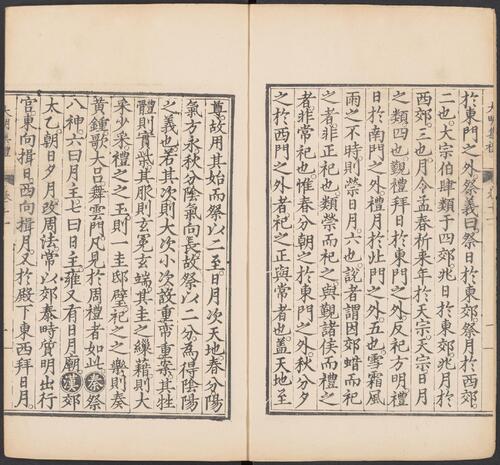 於東門之外祭義曰祭日於東郊祭月於西郊
二也大宗伯肆類于四郊兆日於東郊兆月於
西郊三也月令孟春祈來年於天宗天宗日月
之類四也覲禮拜日於東門之外反祀方明禮
日於南門之外禮月於北門之外五也雪霜風
雨之不時則禜日月六也說者謂因郊蜡而祀
之者非正祀也類禜而祀之與覲諸侯而禮之
者非常祀也惟春分朝之於東門之外秋分夕
之於西門之外者祀之正與常者也蓋天地至
尊故用其始而祭以二至日月次天地春分陽
氣方永秋分陰氣向長故祭以二分為得陰陽
之義也若其次則大次小次設重帟重案其牲
體則實柴其服則玄冕玄端其圭之繅藉則大
采少采禮之之玉則一圭邸璧祀之之樂則奏
黃鍾歌大呂舞雲門凡見於周禮者如此秦祭
八神六曰月主七曰日主雍又有日月廟漢郊
太乙朝日夕月改周法常以郊泰畤質明出行
宮東向揖日西向揖月又於殿下東西拜日月